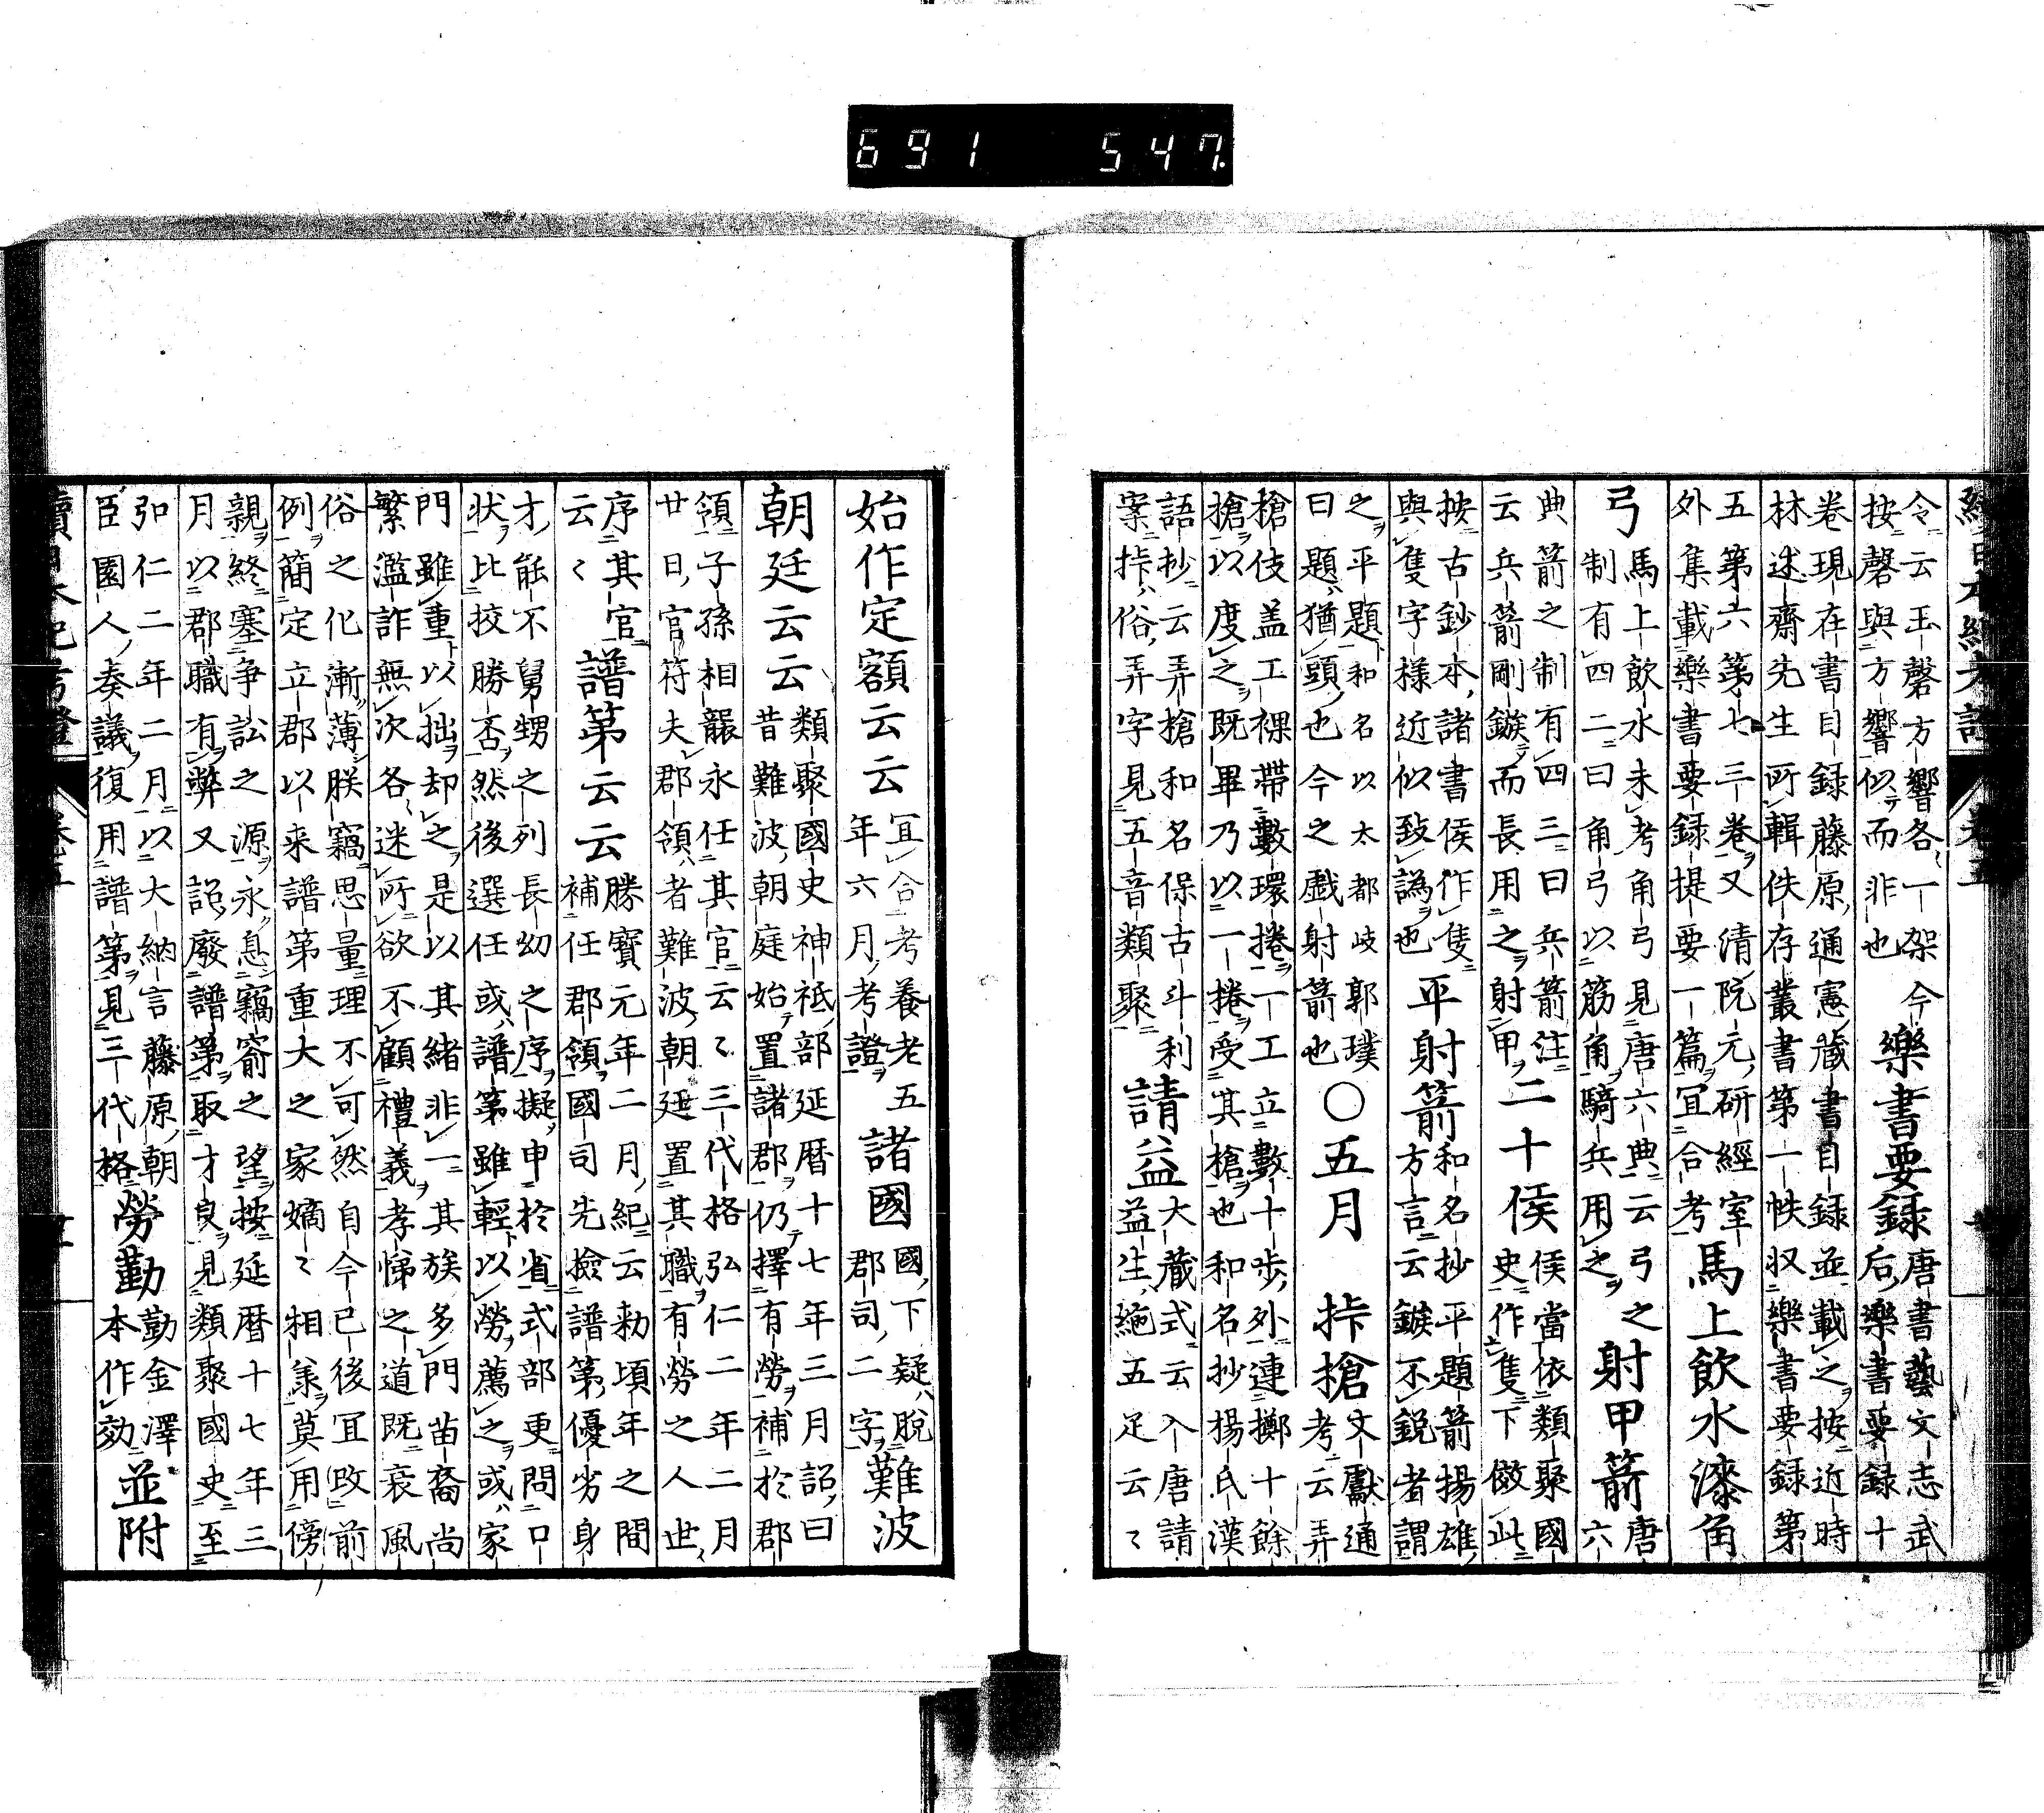 令云玉磬方響各一架今
按磬與方響似而非也
樂書要録
唐書藝文志武
后樂書要録十
卷現在書目録藤原通憲蔵書目録並載之按近時
林述齋先生所輯佚存叢書第一帙収樂書要録第
五第六第七三卷又清阮元研經室
外集載樂書要録提要一篇冝合考
馬上飲水漆角
弓
馬上飲水未考角弓見唐六典云弓之
制有四二曰角弓以筋角騎兵用之
射甲箭
唐
六
典箭之制有四三曰兵箭注
云兵箭剛鏃而長用之射甲
二十侯
侯當依類聚國
史作隻下倣此
按古鈔本諸書侯作隻
與隻字様近似致譌也
平射箭
和名抄平題箭揚雄
方言云鏃不鋭者謂
之平題和名以太都岐郭璞
曰題猶頭也今之戲射箭也
〇五月 挊槍
文獻通
考云弄
槍伎盖工裸帶數環捲一工立數十歩外連擲十餘
槍以度之既畢乃以一捲受其槍也和名抄楊氏漢
語抄云弄槍和名保古斗利
案挊俗弄字見五音類聚
請益
大蔵式云入唐請
益生絁五疋云〻
始作定額云云
冝合考養老五
年六月考證
諸國
國下疑脱
郡司二字
難波
朝廷云云
類聚國史神祇部延暦十七年三月詔曰
昔難波朝庭始置諸郡仍擇有勞補於郡
領子孫相襲永任其官云〻三代格弘仁二年二月
廿日官符夫郡領者難波朝廷置其職有勞之人世
序其官
云〻
譜第云云
勝寶元年二月紀云勅頃年之間
補任郡領國司先撿譜第優劣身
才能不舅甥之列長幼之序擬申於省式部更問口
状比挍勝否然後選任或譜第雖輕以勞薦之或家
門雖重以拙却之是以其緒非一其族多門苗裔尚
繁濫詐無次各迷所欲不顧禮義孝悌之道既衰風
俗之化漸薄朕竊思量理不可然自今已後冝改前
例簡定立郡以来譜第重大之家嫡〻相継莫用傍
親終塞争訟之源永息竊窬之望按延暦十七年三
月以郡職有弊又詔廢譜第取才良見類聚國史至
弘仁二年二月以大納言藤原朝
臣園人奏議復用譜第見三代格
勞勤
勤金澤
本作効
並附
續日本紀考證
691 547